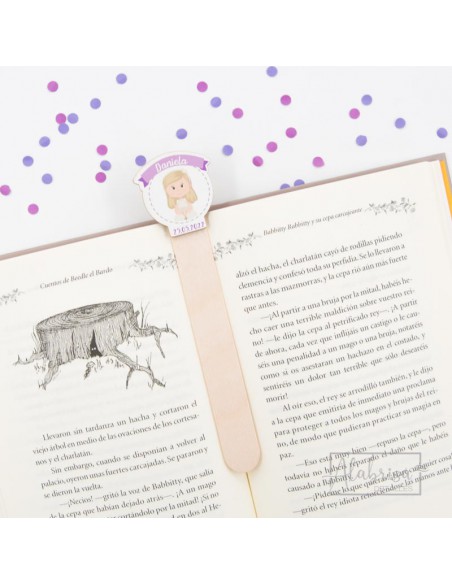 Daniela
25.05.2022
Cuentos de Beedle el Bardo
Llevaron sin tardanza un hacha y cortaron el
viejo árbol en medio de las ovaciones de los cortesa-
nos y el charlatán.
Sin embargo, cuando se disponían a volver al
palacio, oyeron unas fuertes carcajadas. Se pararon en
seco y se dieron la vuelta.
—¡Necios! —gritó la voz de Babbitty, que salía
de la cepa que habían dejado atrás—. ¡A un mago
Babbitty Rabbitty y su cepa carcajeante
alzó el hacha, el charlatán cayó de rodillas pidiendo
clemencia y confesó toda su perfidia. Se lo llevaron a
rastras a las mazmorras, y la cepa rió aún más fuerte
que antes.
—¡Al partir a una bruja por la mitad, habéis he-
cho caer una terrible maldición sobre vuestro rei-
no! —le dijo la cepa al petrificado rey—. ¡A partir
de ahora, cada vez que inflijáis un castigo
séis una penalidad a un mago o una bruja, notaréis
como si os asestaran un hachazo en el costado, y
sentiréis un dolor tan terrible que
Al oír eso, el rey se arrodilló también, y le dijo
a la cepa que emitiría de inmediato una proclama
para proteger a todos los magos y brujas del rei-
no, de modo que pudieran practicar su magia en
—Está muy bien —repuso la cepa—, pero
todavía no habéis reparado el daño que le habéis
causado a Babbitty
Alabrisa